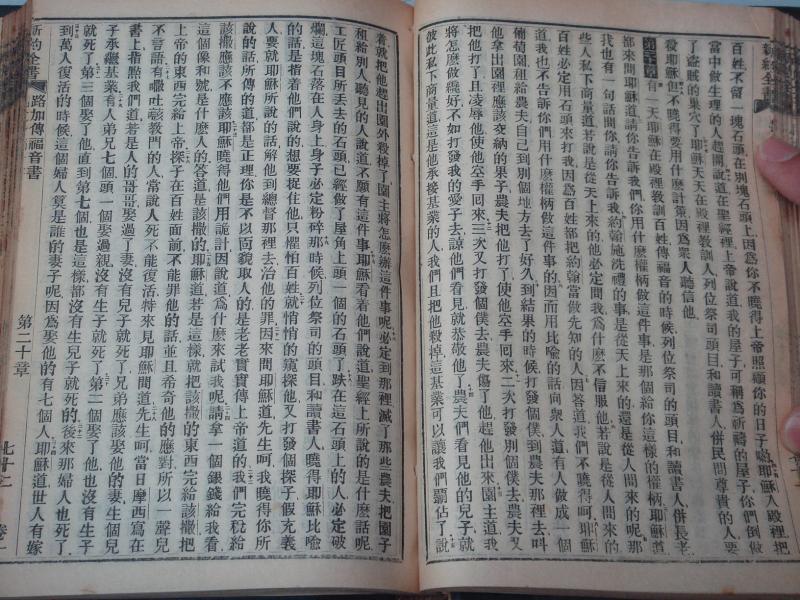 新約全書
百姓不留一塊石頭在別塊石頭上因爲你不曉得上帝照顧你的日子喲耶穌入殿裡把
當中做生理的人趕開說道在聖經裡上帝說道我的屋子可稱爲祈禱的屋子你們倒做
了盜賊的巢穴了耶穌天天在殿裡教訓人列位祭司頭目和讀書人併民間尊貴的人要
殺耶穌但不曉得要用什麽計策因爲衆人聽信他
第二十章有一天耶穌在殿裡教訓百姓傳福音的時候列位祭司的頭目和讀書人併長老
都來問耶穌道請你告訴我們你用什麽權柄做這件事是那個給你這樣的權柄耶穌道
我也有一句話問你請你告訴我約翰施洗禮的事是從天上來的還是從人間來的呢那
些人私下商量道若說是從天上來的他必定問我爲什麽不信服他若說是從人間來的
百姓必定用石頭來打我因爲百姓都把約翰當做先知的人因答道我們不曉得呵耶穌
道我也不告訴你們用什麽權柄做這件事的因而用比喻的話向衆人道有人做成一個
葡萄園租給農夫自己到別個地方去了好久到結果的時候打發個僕到農夫那裡去叫
他拿出園裡應該交納的果子農夫把他打了使他空手回來二次打發別個僕去農夫又
把他打了且凌辱他使他空手回來三次又打發個僕去農夫傷了他趕他出來園主道我
將怎麽做纔好不如打發我的愛子去諒他們看見就恭敬他了農夫們看見他的兒子就
彼此私下商量道這是他承接基業的人我們且把他殺掉這基業可以讓我們霸佔了說
着就把他趕出園外殺掉了園主將怎麽辦這件事呢必定到那裡滅了那些農夫把園子
和給別人聽見的人說道不願有這件事耶穌看着他們說道聖經上所說的是什麽話呢
工匠頭目所丟去的石頭已經做了屋角上頭一個的石頭了跌在這石頭上的人必定破
爛這塊石落在人身上身子必定粉碎那時候列位祭司的頭目和讀書人曉得耶穌比喻
的話是指着他們說的想要捉住他只懼怕百姓就悄悄的窺探他又打發個探子假充義
人要就耶穌所說的話解他到總督那裡去治他的罪因來問耶穌道先生呵我曉得你所
說的話所傳的道都是正理你是不以面貌取人的是老老實實傳上帝道的我們完稅給
該撒應該不應該耶穌曉得他們用詭計因說道爲什麽來試我呢請拿一個銀錢給我看
這個像和號是什麽人的答道是該撒的耶穌道若是這樣就把該撒的東西完給該撒把
上帝的東西完給上帝探子在百姓面前不能罪他的話並且希奇他的應對所以一聲兒
不言語有𠵽吐𠸄教門的人常說人死不能復活特來見耶穌問道先生呵當日摩西寫在
書上指點我們道若是人的哥哥娶過了妻沒有兒子就死了兄弟應該娶他的妻生個兒
子承繼基業有人弟兄七個頭一個娶過親沒有生兒子就死了第二個娶了他也沒有生子
就死了第三個娶了他直到第七個也是這樣都沒有生子就死的後來那婦人也死了
到萬人復活的時候這個婦人算是誰的妻子呢因爲娶他的有七個人耶穌道世人有嫁
新約全書 路加傳福音書 第二十章 七十二 卷一